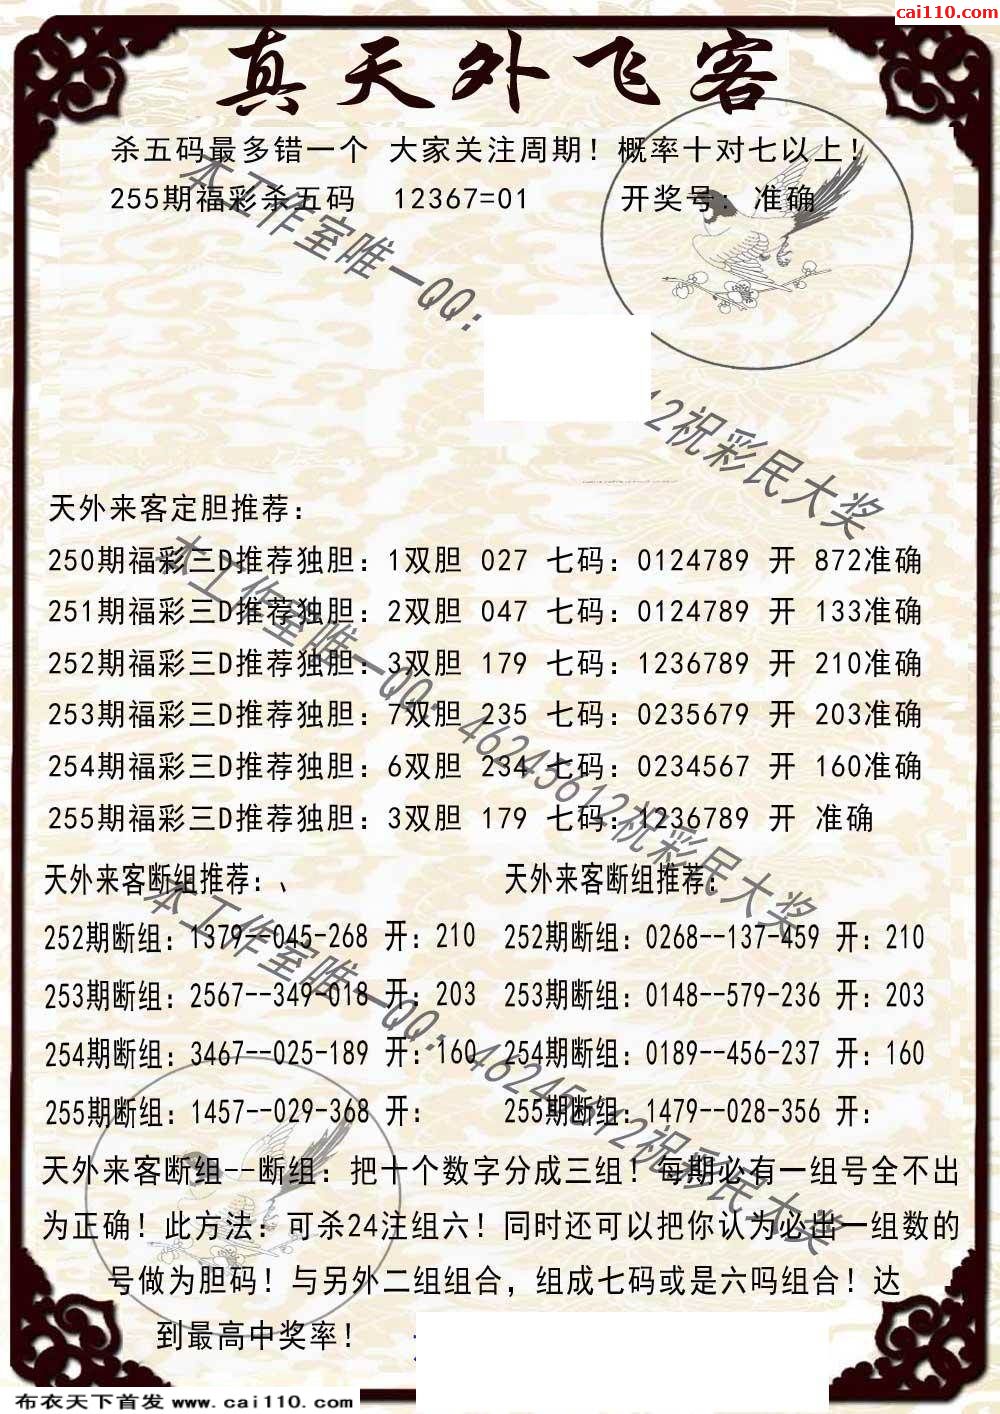 cai110.com
真天外飞客
杀五码最多错一个 大家关注周期！概率十对七以上！
255期福彩杀五码 12367=01 开奖号: 准确
本工作室唯一QQ:
12祝彩民大奖
天外来客定胆推荐：
250期福彩三D推荐独胆：1双胆 027 七码：0124789 开 872准确
251期福彩三D推荐独胆：2双胆 047 七码：0124789 开 133准确
252期福彩三D推荐独胆：3双胆 179 七码：1236789 开 210准确
253期福彩三D推荐独胆：7双胆 235 七码：0235679 开 203准确
254期福彩三D推荐独胆：6双胆 234 七码：0234567 开 160准确
255期福彩三D推荐独胆：3双胆 179 七码：1236789 开 准确
本工作室唯一QQ: 46245612祝彩民大奖
天外来客断组推荐：、 天外来客断组推荐：
252期断组：1379--045-268 开：210 252期断组：0268--137-459 开：210
253期断组：2567--349-018 开：203 253期断组：0148--579-236 开：203
254期断组：3467--025-189 开：160 254期断组：0189--456-237 开：160
255期断组：1457--029-368 开： 255期断组：1479--028-356 开：
本工作室唯一QQ: 46245612祝彩民大奖
天外来客断组--断组：把十个数字分成三组！每期必有一组号全不出
为正确！此方法：可杀24注组六！同时还可以把你认为必出一组数的
号做为胆码！与另外二组组合，组成七码或是六吗组合！达
到最高中奖率！
布衣天下首发 www.cai110.com